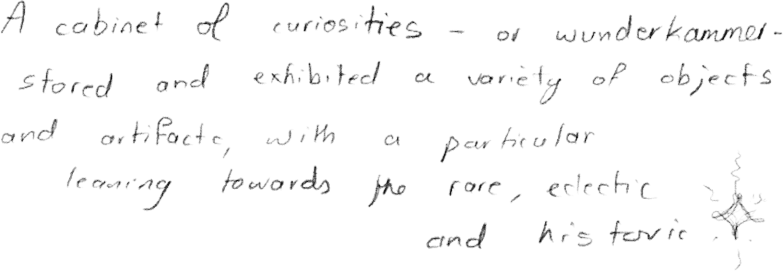 A cabinet of curiosities - or wunderkammer-
stored and exhibited a variety of objects
and artifacts, with a particular
leaning towards the rare, eclectic
and historic.